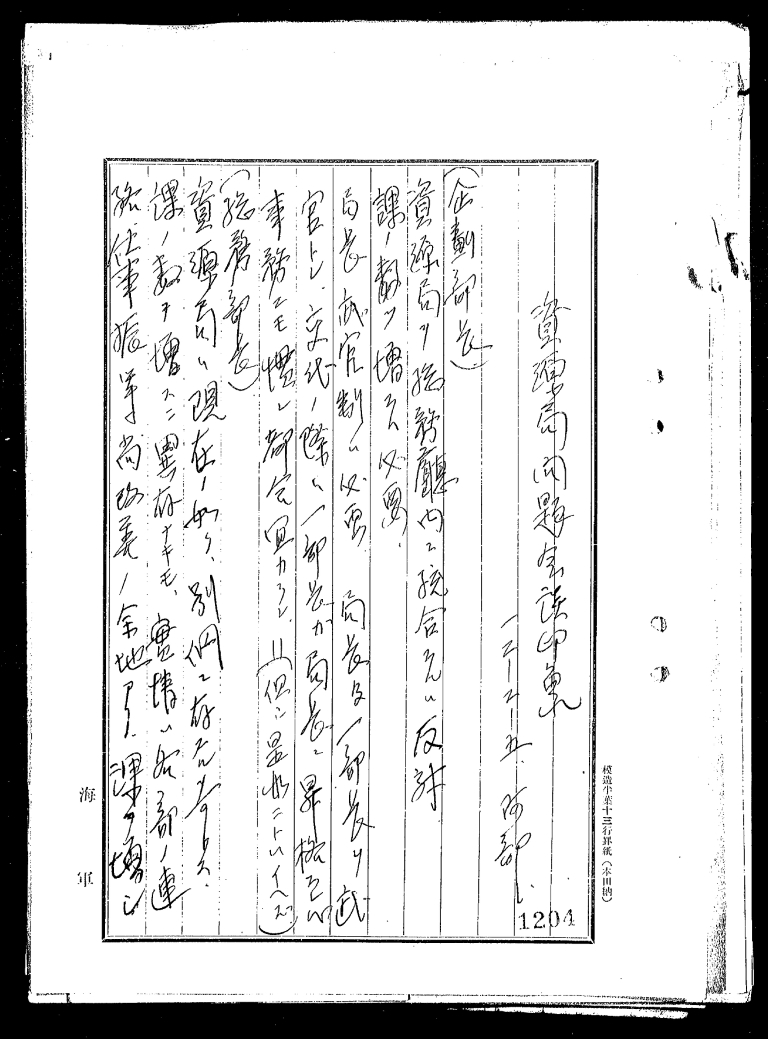 資源局問題会談印象
一二―二―五、阿部
(企劃部長)
資源局ヲ総務廳内ニ統合スルハ反対
課ノ数ヲ増スハ必要、
局長武官制ハ必要 局長及一部長ヲ武
官トシ、交代ノ際ハ一部長ガ局長ニ昇格スレバ
事務ニモ慣レ都合宜カラン、(但シ是非ニトハイヘズ)
(総務部長)
資源局ハ現在ノ如ク、別個ニ存スルヲ可トス、
課ノ数ヲ増スニ異存ナキモ、實情ハ各部ノ連
絡仕事振等尚改善ノ余地アリ、課ヲ増シ
海軍
模造半葉十三行罫紙(本田納)
1204